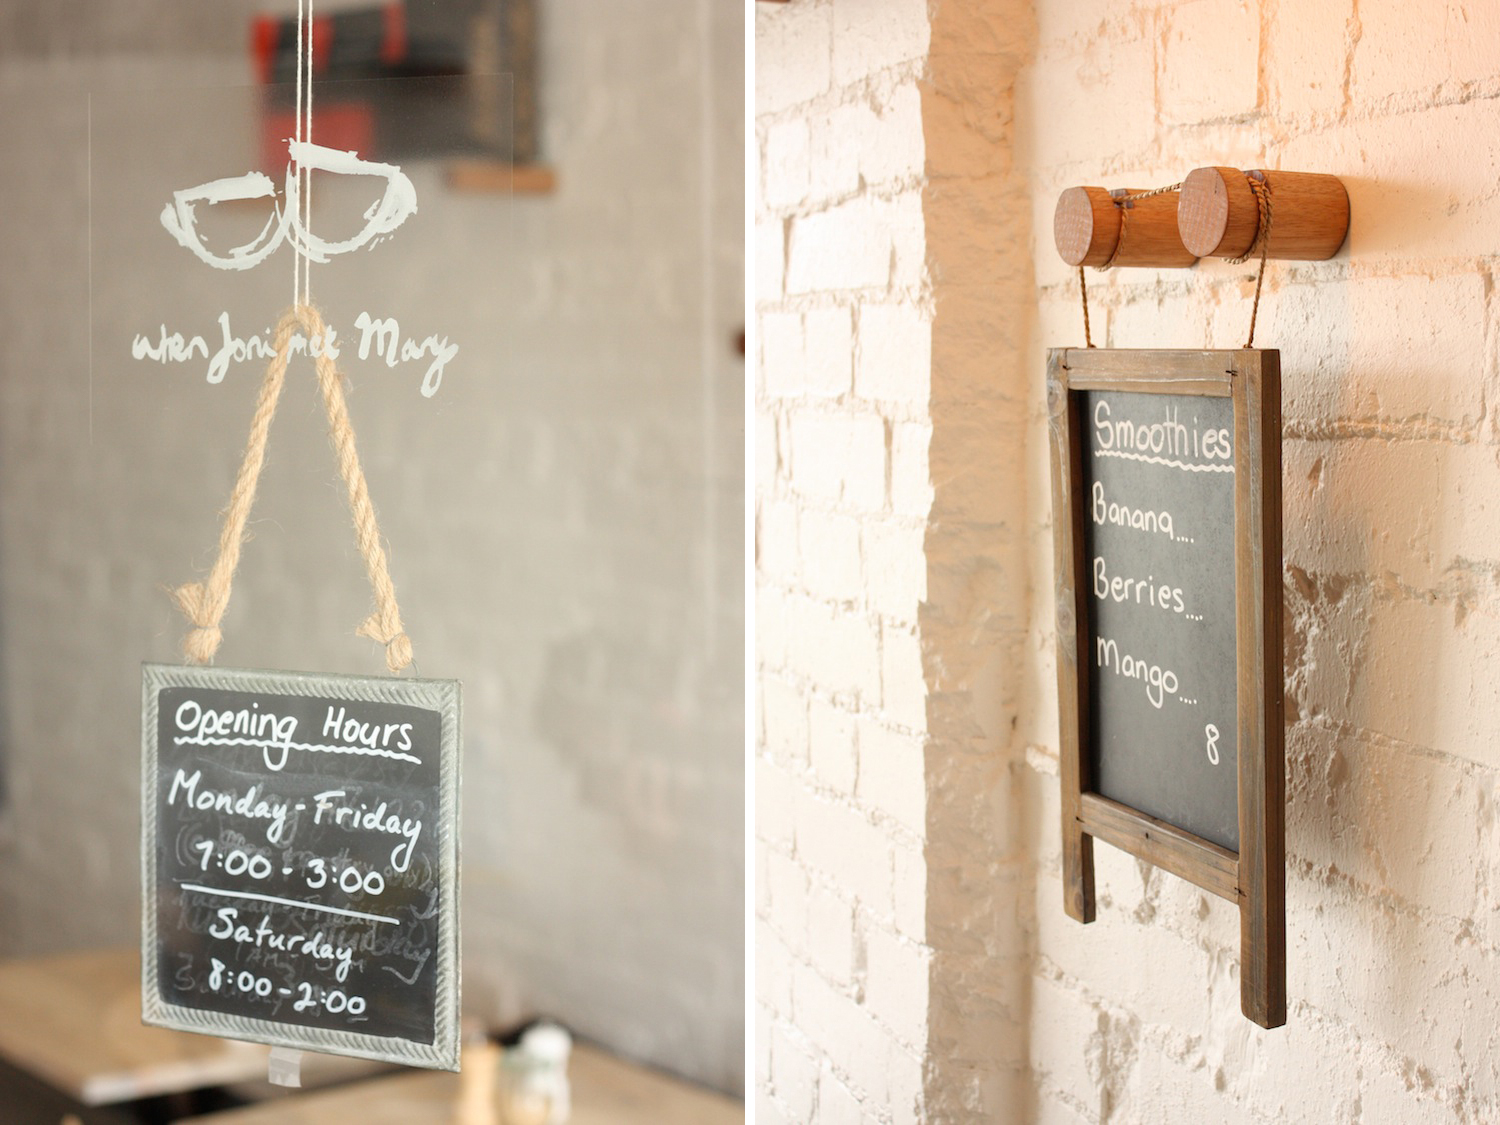 when Joni met Mary
Opening Hours
Monday-Friday
7:00 - 3:00
Saturday
8:00-2:00
Smoothies
Banana....
Berries....
Mango....
8